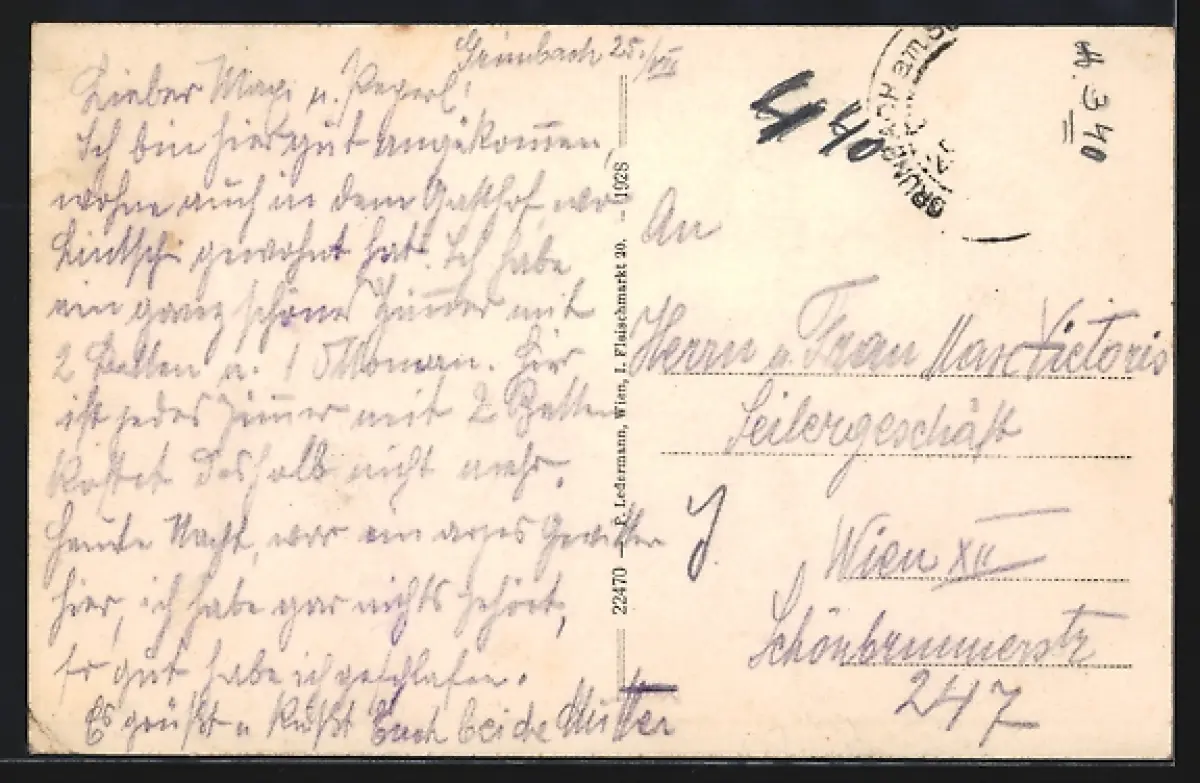 Grünbach 25./VIII
Lieber Maxi u. Peperl!
Ich bin hier gut angekommen,
wohne auch in dem Gasthof wo
Lintschi gewohnt hat. Ich habe
ein ganz schönes Zimmer mit
2 Betten u. 1 Ottoman. Hier
ist jedes Zimmer mit 2 Betten
kostet deshalb nicht mehr.
Heute Nacht, war ein arges Gewitter
hier, ich habe gar nichts gehört,
so gut habe ich geschlafen.
Es grüßt u küßt Euch beide Mutter
22470 — F. Ledermann, Wien, I. Fleischmarkt 20. — 1928
440
A. 340
GRÜNBACH am
An
Herrn u. Frau Max Victoris
Seilergeschäft
Wien XII
Schönbrunnerstr
247